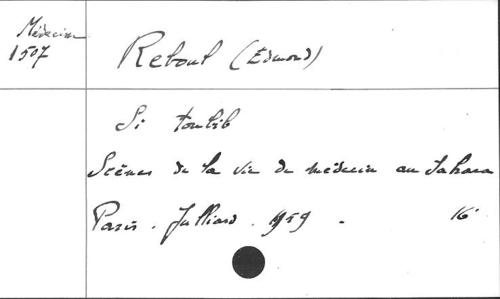 Médecine
1507
Reboul (Edmond)
Si toubib
Scènes de la vie de médecin au Sahara
Paris. Julliard. 1959. 16°